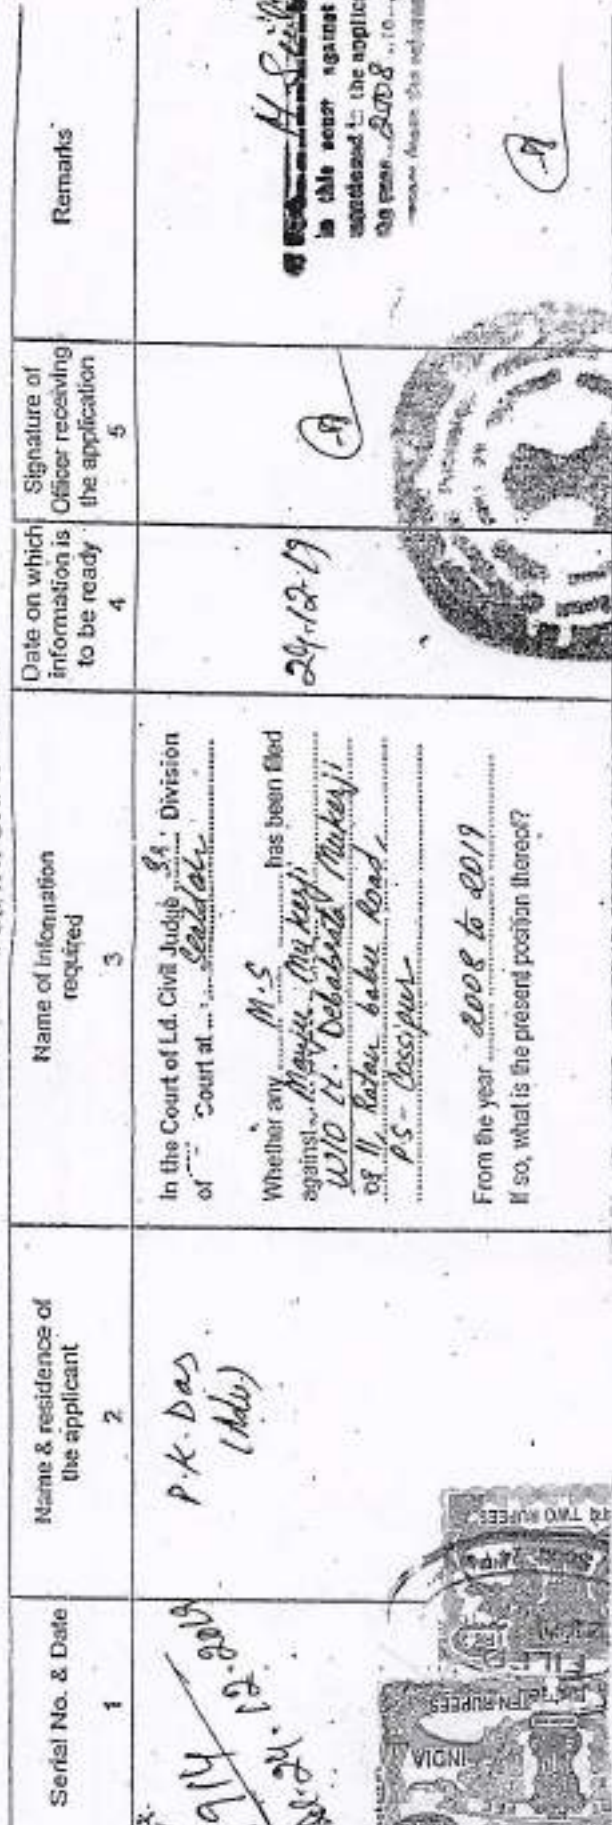 Serial No. & Date
1
Name & residence of
the applicant
2
Name of Information
required
3
Date on which
information is
to be ready
4
Signature of
Officer receiving
the application
5
Remarks
914
24.12.2019
P.K. Das
(Adv.)
In the Court of Ld. Civil Judge Sr. Division
of Court at Sealdah
Whether any M.S has been filed
against Manju Mukerji
W/O Lt. Debabrata Mukerji
of 11, Ratan babu Road,
PS- Cossipur
From the year 2008 to 2019
If so, what is the present position thereof?
24.12.19
in this court against
the applic
the year 2008
INDIA
TEN RUPEES
TWO RUPEES